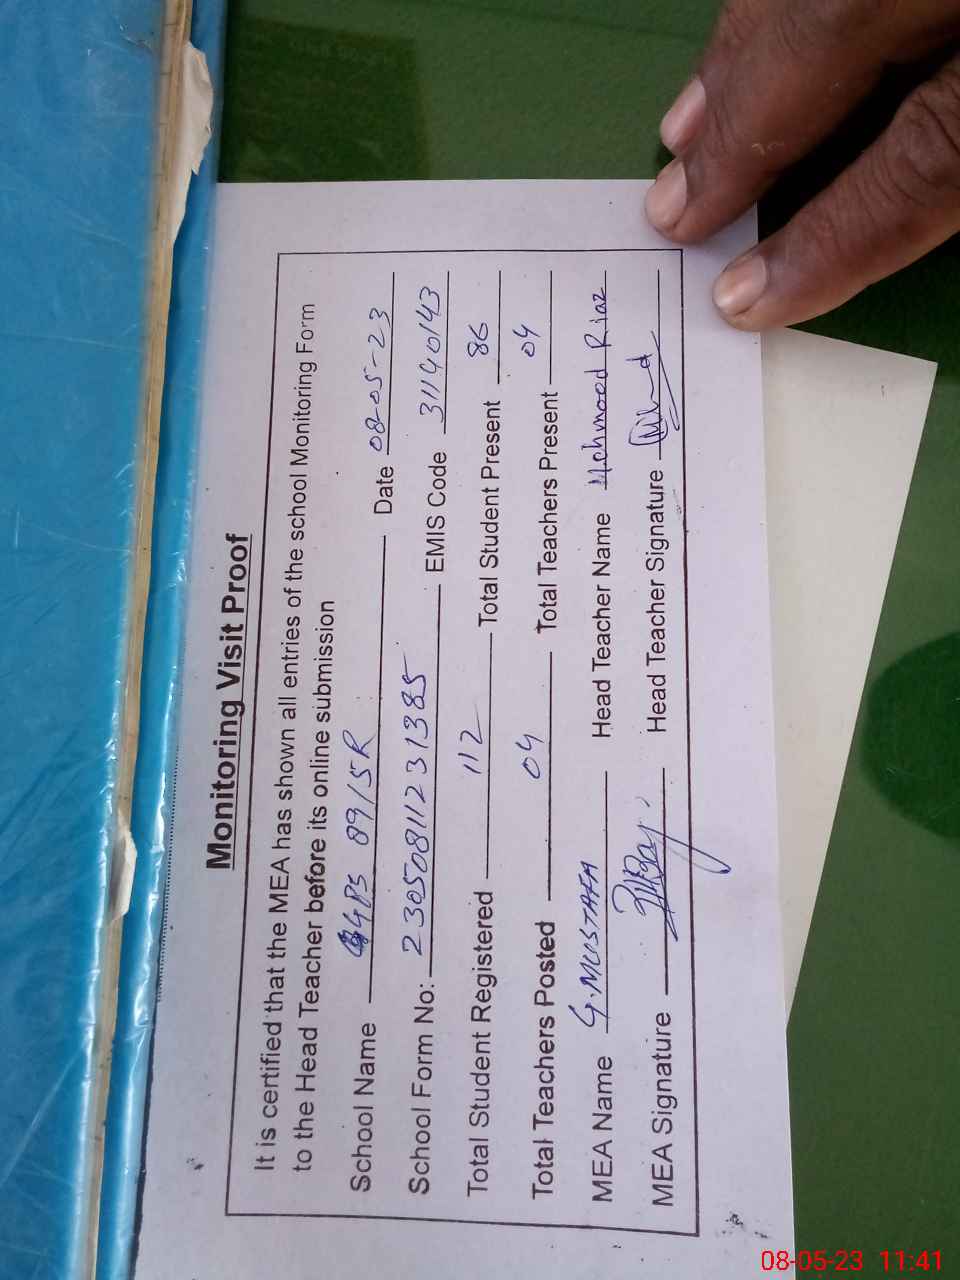 Monitoring Visit Proof
It is certified that the MEA has shown all entries of the school Monitoring Form
to the Head Teacher before its online submission
School Name GPS 89/5R Date 08-05-23
School Form No: 23050811231385 EMIS Code 31140143
Total Student Registered 112 Total Student Present 86
Total Teachers Posted 04 Total Teachers Present 04
MEA Name G.MUSTAFA Head Teacher Name Mehmood Riaz
MEA Signature Head Teacher Signature
08-05-23 11:41